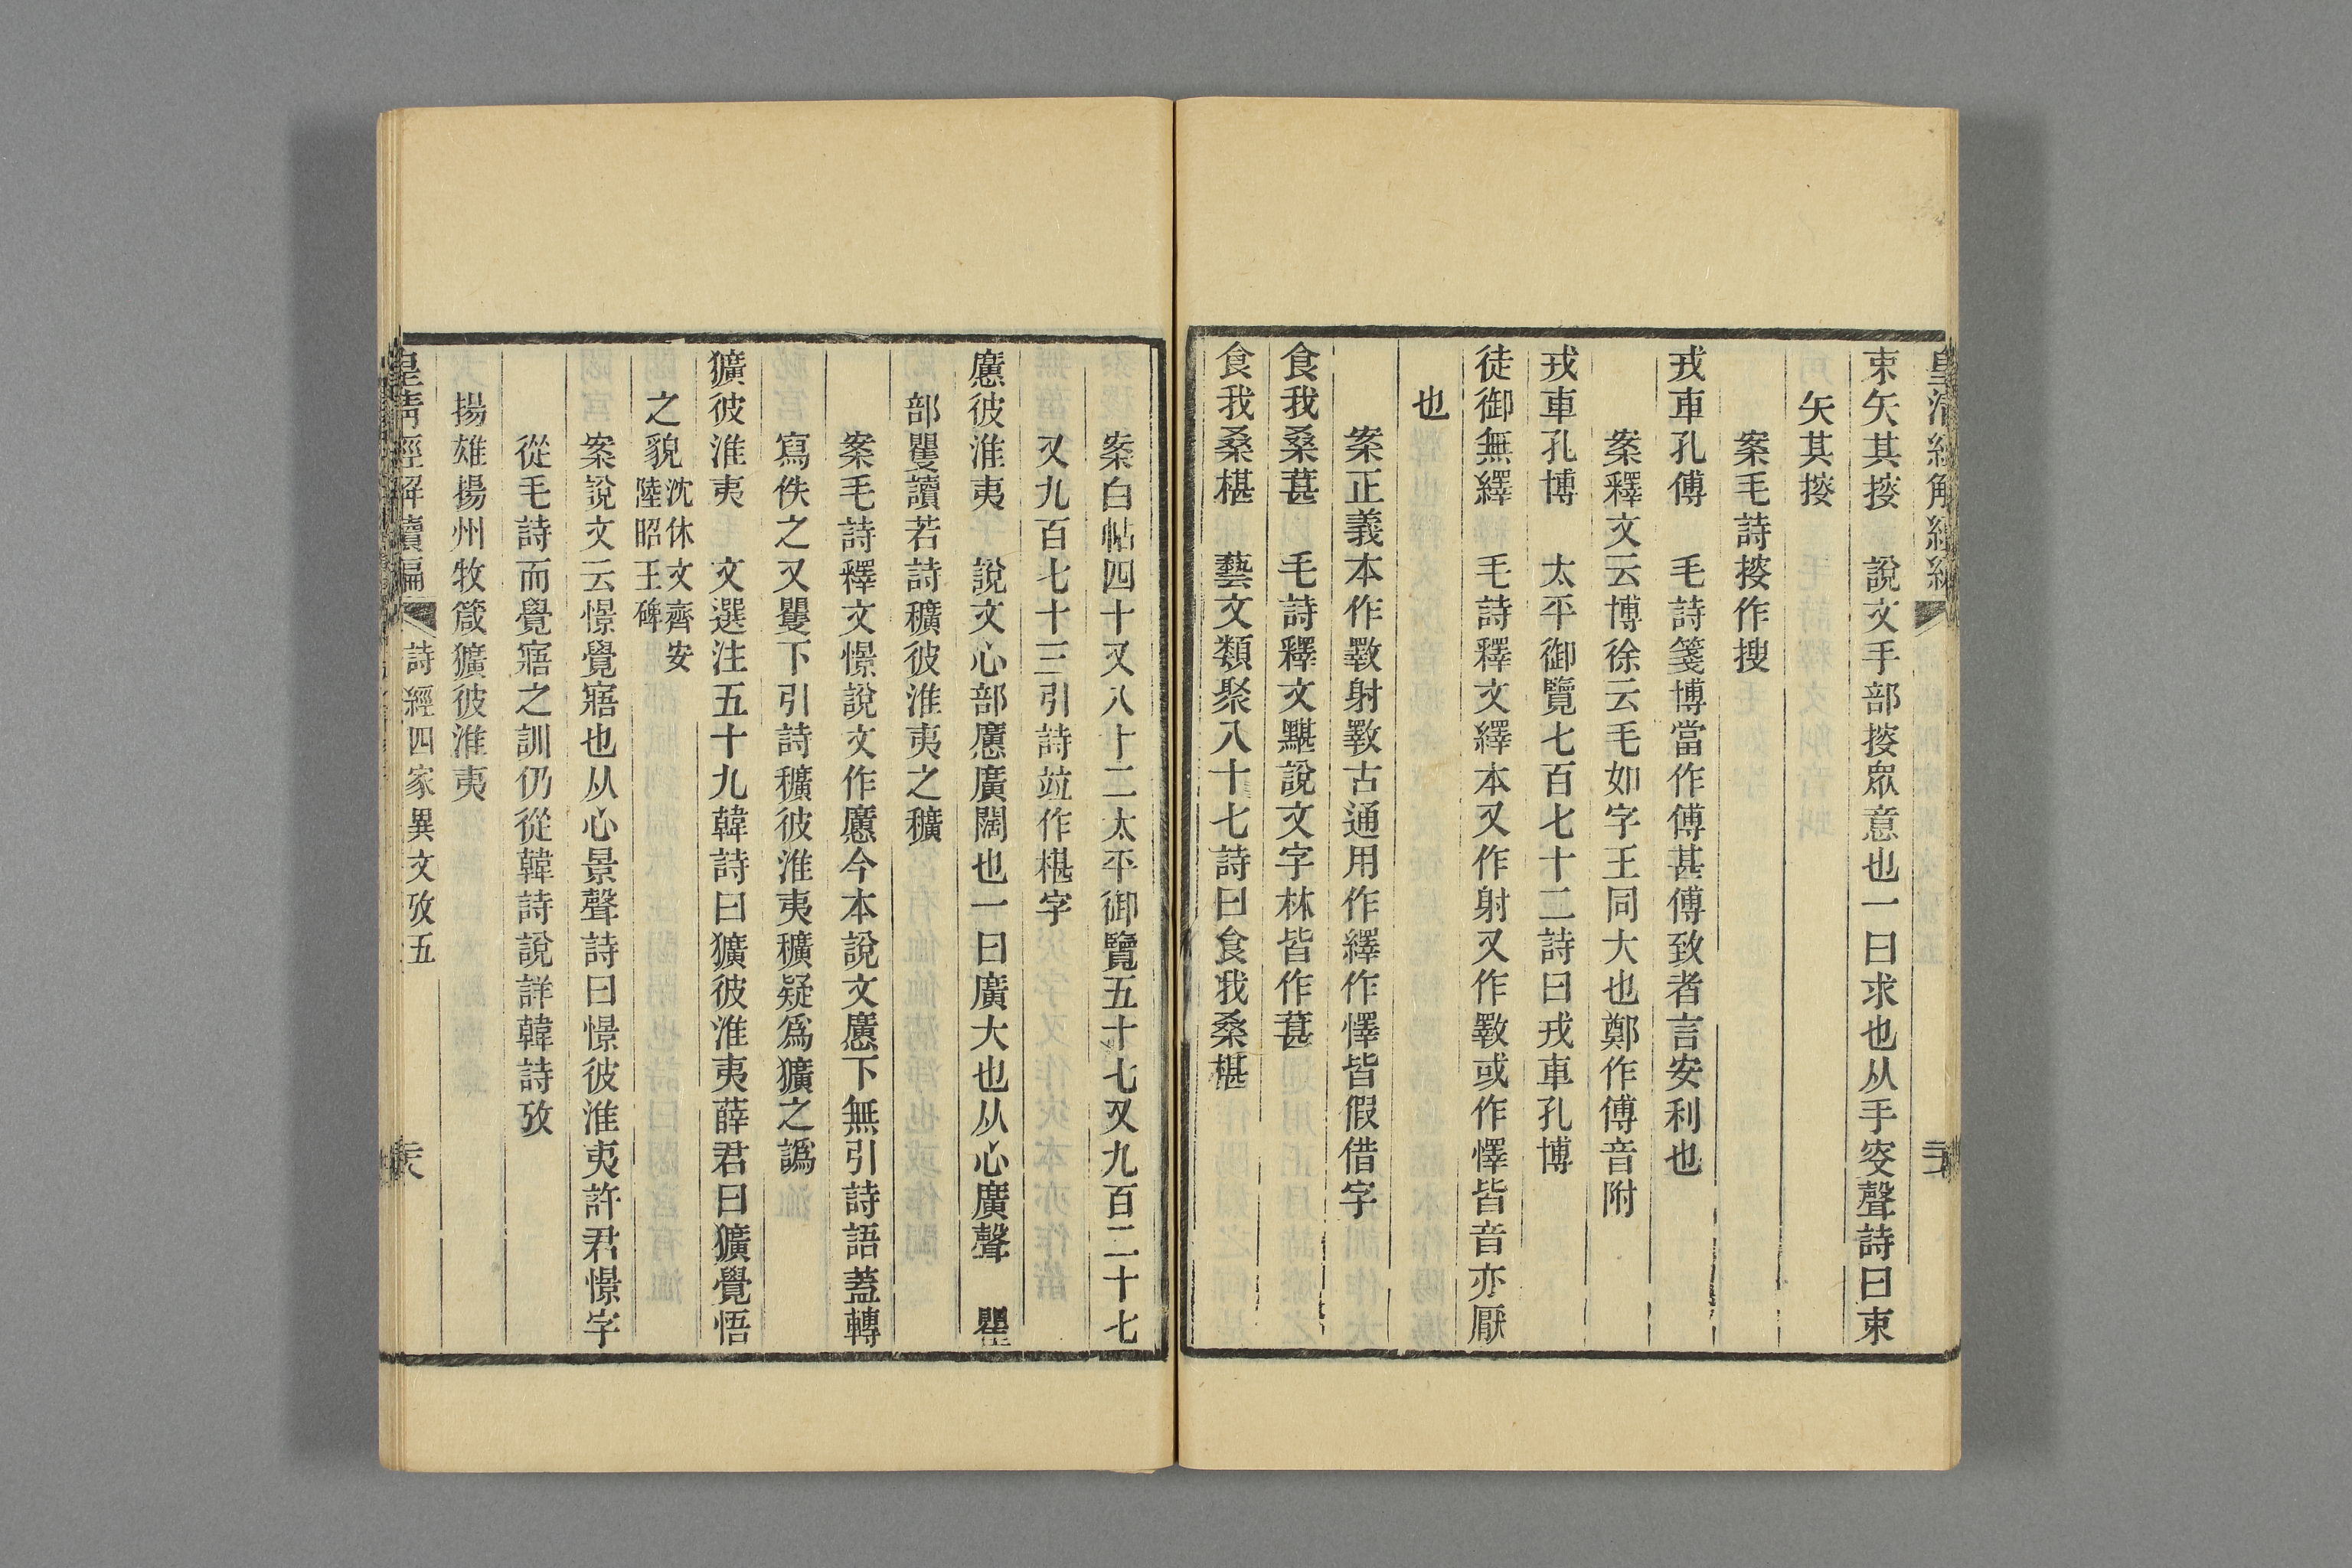 皇清經解續編
束矢其㛮　說文手部㛮眾意也一曰求也从手叜聲詩曰束
矢其㛮
案毛詩㛮作搜
戎車孔傅　毛詩箋博當作傅甚傅致者言安利也
案釋文云博徐云毛如字王同大也鄭作傅音附
戎車孔博　太平御覽七百七十二詩曰戎車孔博
徒御無繹　毛詩釋文繹本又作射又作斁或作懌皆音亦厭
也
案正義本作斁射斁古通用作繹作懌皆假借字
食我桑葚　毛詩釋文黮說文字林皆作葚
食我桑椹　藝文類聚八十七詩曰食我桑椹
案白帖四十又八十二太平御覽五十七又九百二十七
又九百七十三引詩竝作椹字
懬彼淮夷　說文心部懬廣闊也一曰廣大也从心廣聲　瞿
部矍讀若詩穬彼淮夷之穬
案毛詩釋文憬說文作懬今本說文懬下無引詩語蓋轉
寫佚之又矍下引詩穬彼淮夷穬疑為獷之譌
獷彼淮夷　文選注五十九韓詩曰獷彼淮夷薛君曰獷覺悟
之貌沈休文齊安陸昭王碑
案說文云憬覺寤也从心景聲詩曰憬彼淮夷許君憬字
從毛詩而覺寤之訓仍從韓詩說詳韓詩攷
揚雄揚州牧箴獷彼淮夷
皇清經解續編　詩經四家異文攷五